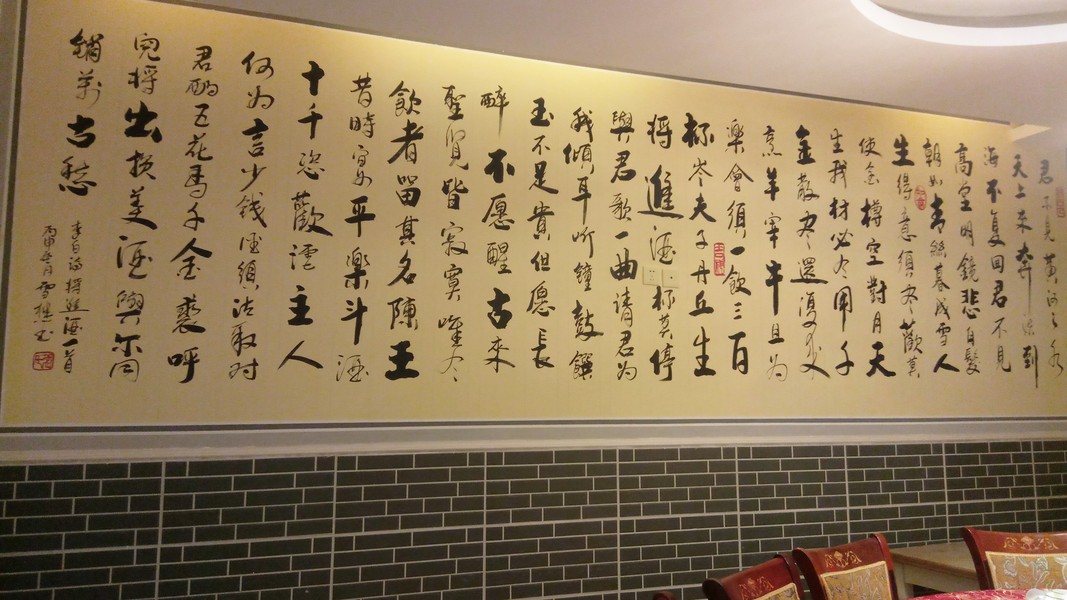 君不見黃河之水
天上来奔流到
海不复回君不見
高堂明鏡悲白髮
朝如青絲暮成雪人
生得意須尽歡莫
使金樽空對月天
生我材必有用千
金散尽還復来
烹羊宰牛且为
樂會須一飲三百
杯岑夫子丹丘生
将進酒杯莫停
與君歌一曲請君为
我傾耳听鐘鼓饌
玉不足貴但愿長
醉不愿醒古来
聖賢皆寂寞唯有
飲者留其名陳王
昔時宴平樂斗酒
十千恣歡謔主人
何为言少錢径須沽取对
君酌五花馬千金裘呼
兒将出换美酒與尔同
銷萬古愁
李白詩将進酒一首
丙申